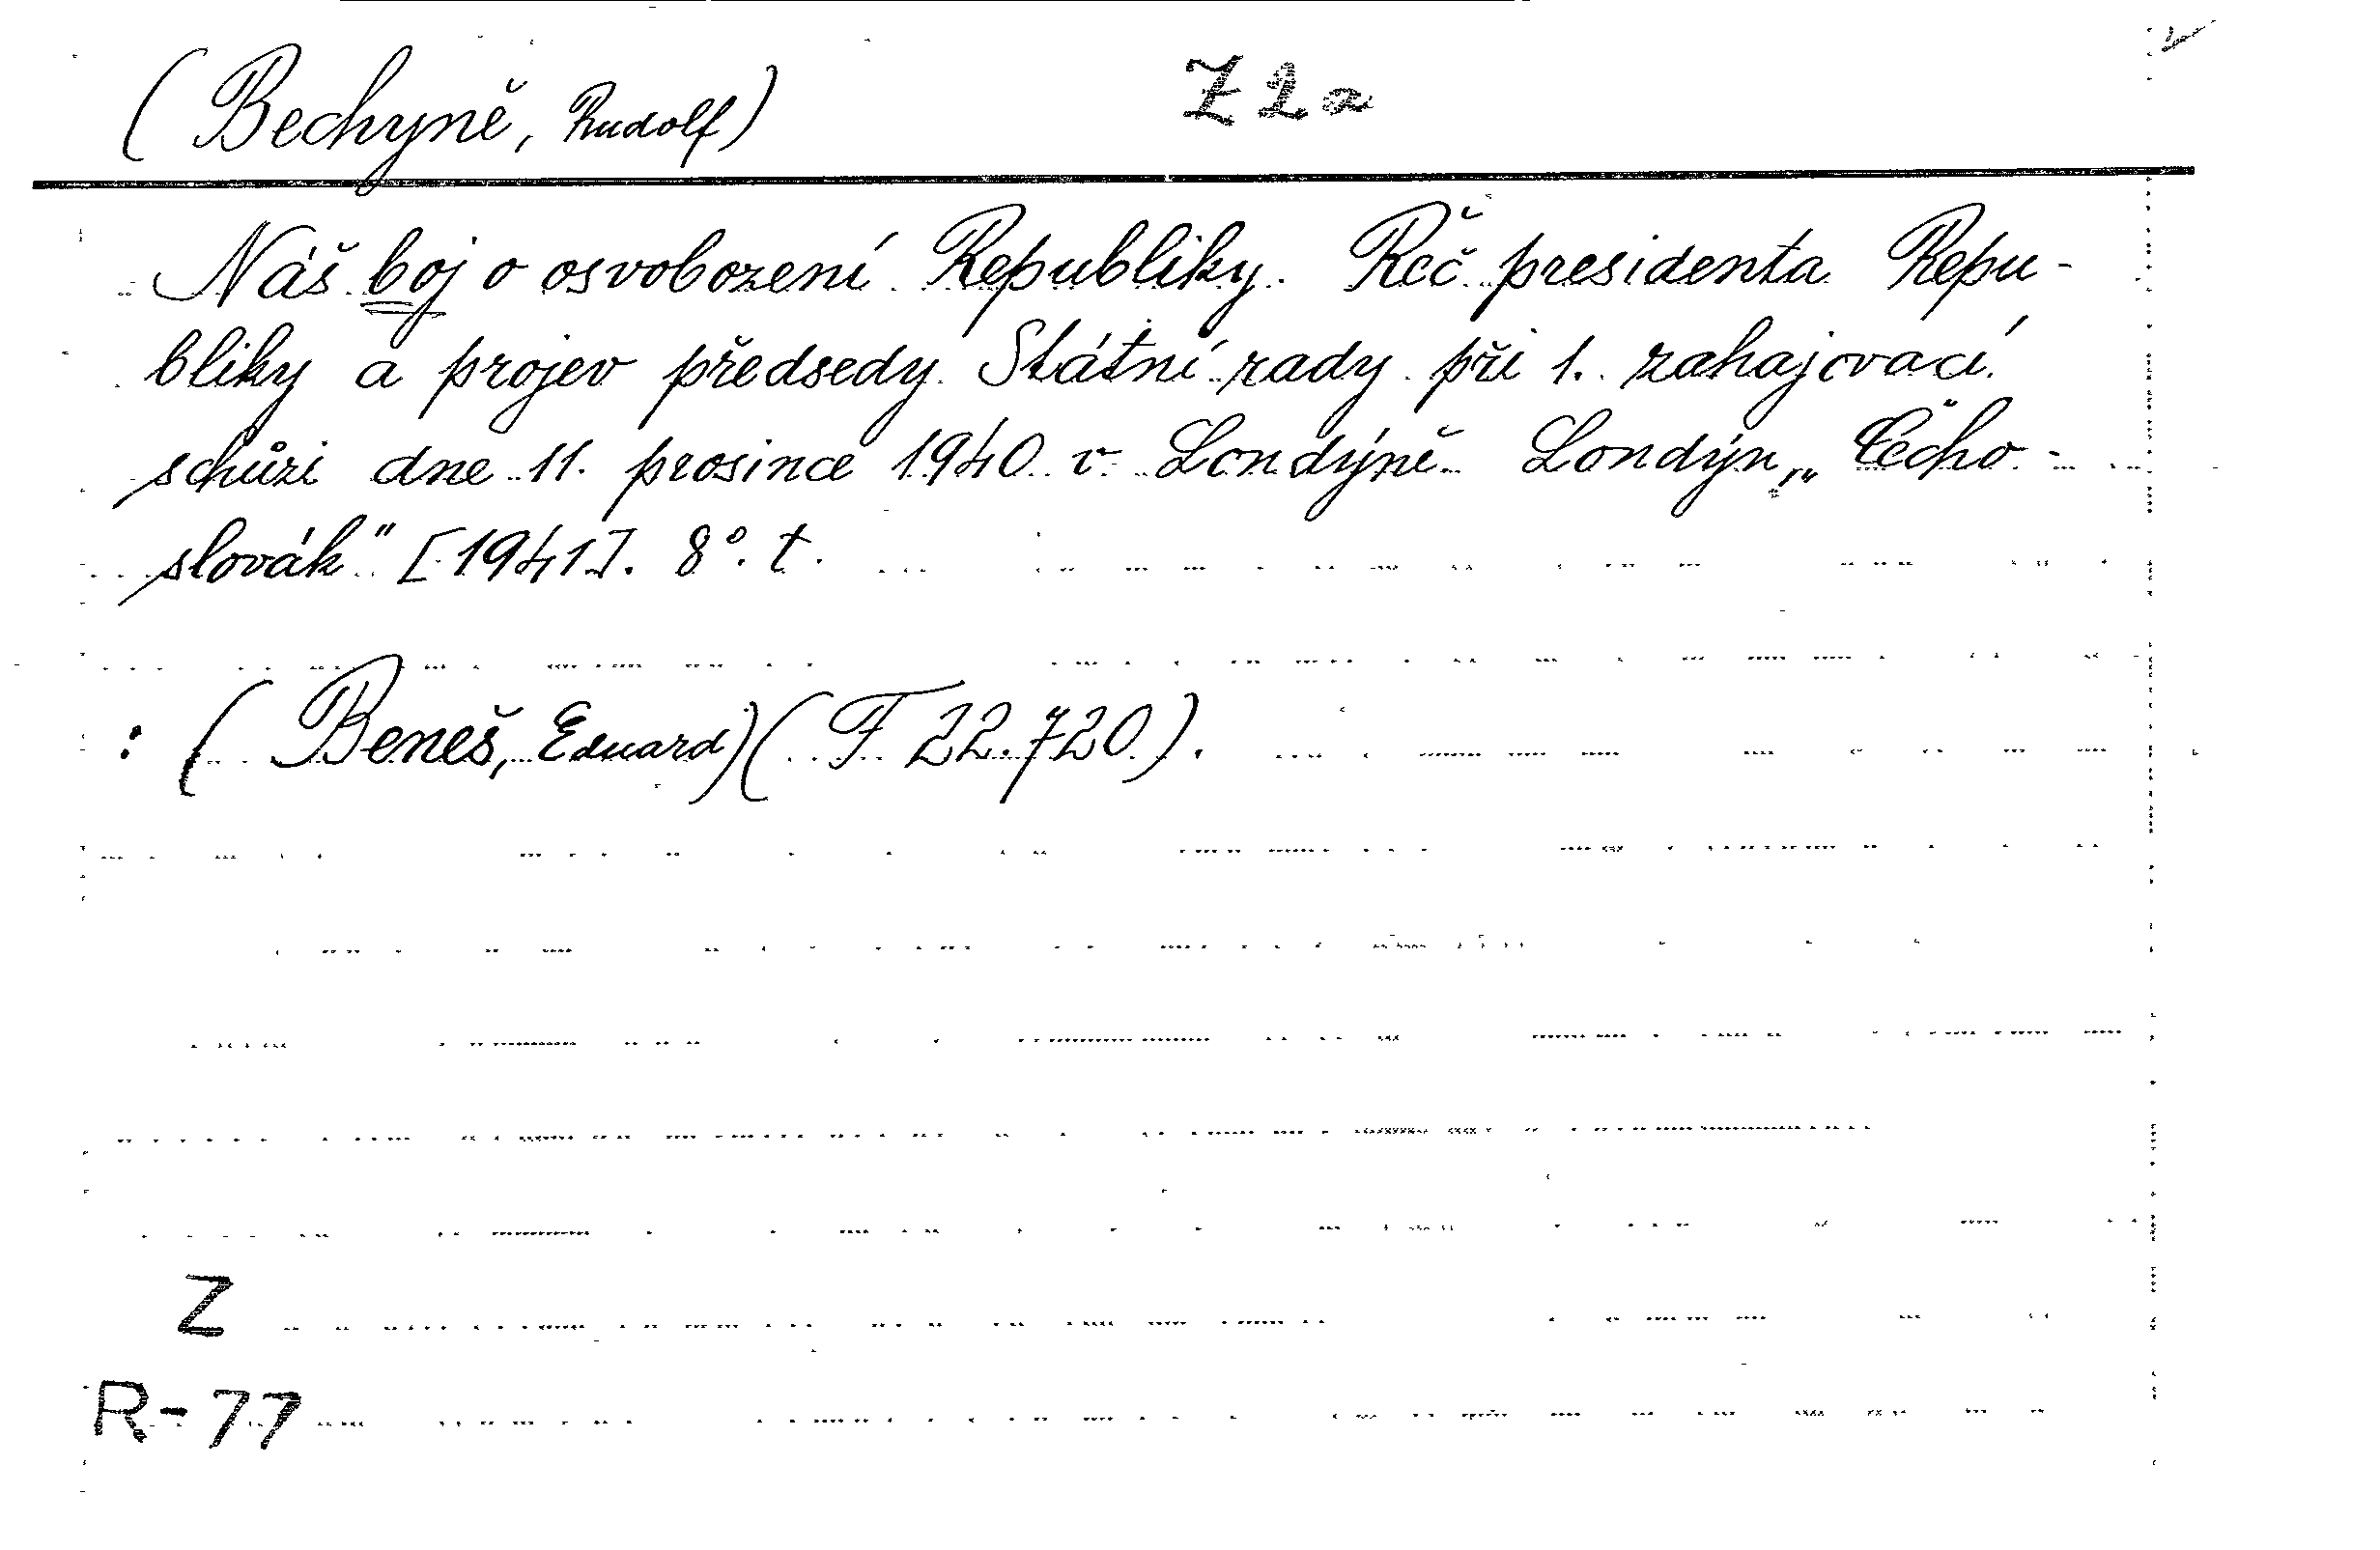 (Bechyně, Rudolf) Z 2a
Náš boj o osvobození Republiky. Řeč presidenta Repu-
bliky a projev předsedy Státní rady při 1. zahajovací
schůzi dne 11. prosince 1940 v Londýně. Londýn, „Čecho-
slovák" [1941]. 8°. t.
: (Beneš, Eduard) (F 22.720).
Z
R-77